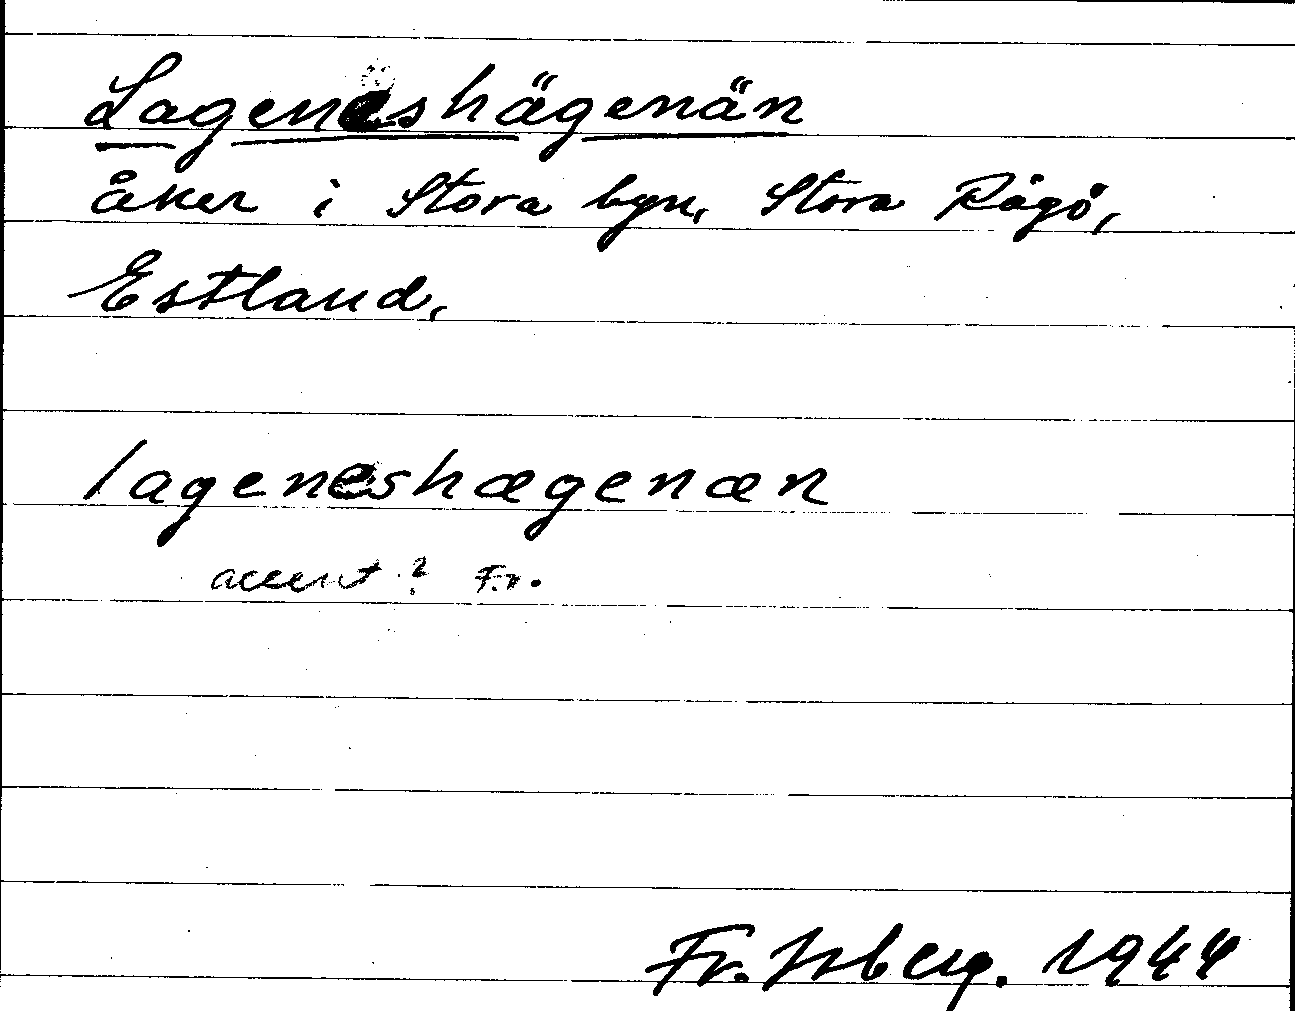 Lageneshägenän
åker i Stora byn, Stora Rågö,
Estland,
lageneshægenæn
accent? Fr.
Fr. Isberg. 1944